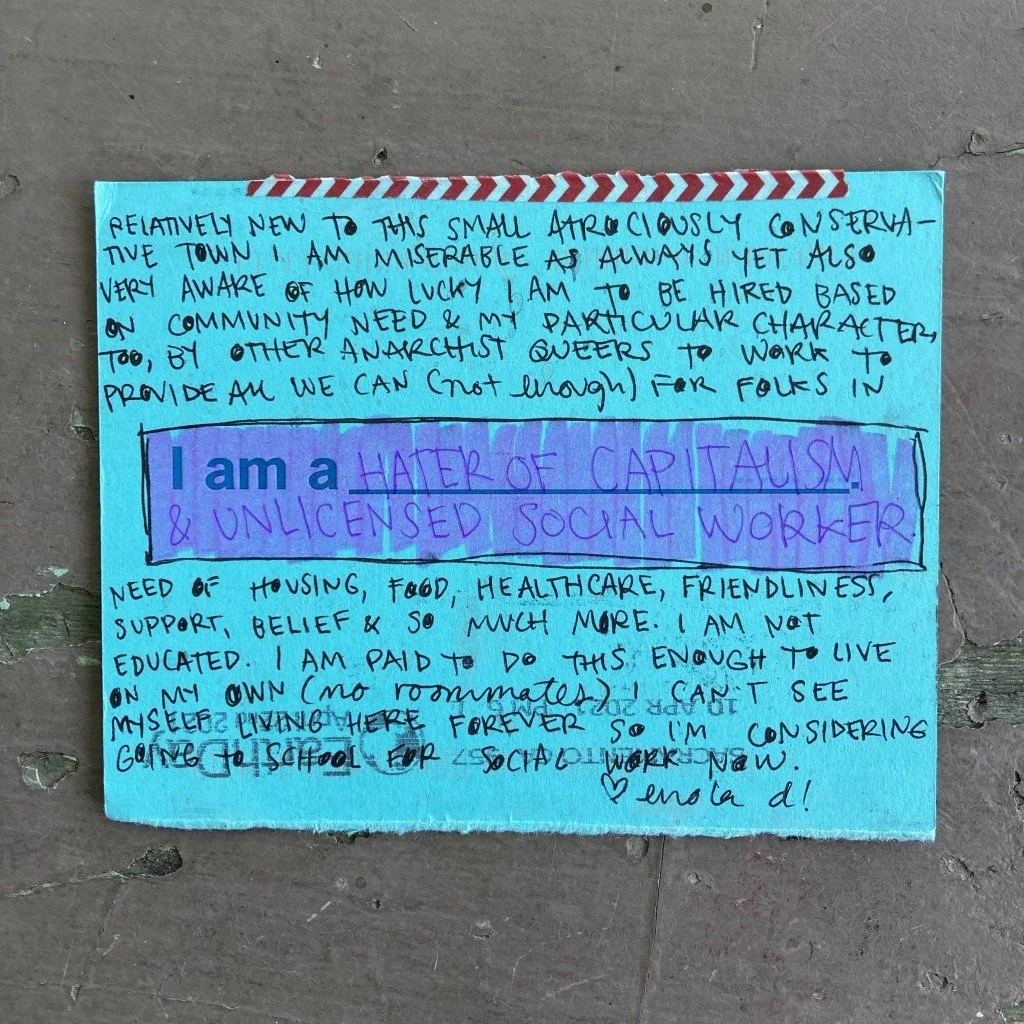 RELATIVELY NEW TO THIS SMALL ATROCIOUSLY CONSERVA-
TIVE TOWN I AM MISERABLE AS ALWAYS YET ALSO
VERY AWARE OF HOW LUCKY I AM TO BE HIRED BASED
ON COMMUNITY NEED & MY PARTICULAR CHARACTER,
TOO, BY OTHER ANARCHIST QUEERS TO WORK TO
PROVIDE ALL WE CAN (not enough) FOR FOLKS IN
I am a HATER OF CAPITALISM.
& UNLICENSED SOCIAL WORKER.
NEED OF HOUSING, FOOD, HEALTHCARE, FRIENDLINESS,
SUPPORT, BELIEF & SO MUCH MORE. I AM NOT
EDUCATED. I AM PAID TO DO THIS ENOUGH TO LIVE
ON MY OWN (no roommates) I CAN'T SEE
MYSELF LIVING HERE FOREVER SO I'M CONSIDERING
GOING TO SCHOOL FOR SOCIAL WORK NOW.
♡ enola d!
SACRAMENTO CA 957
10 APR 2023 PM 6 L
EarthDay